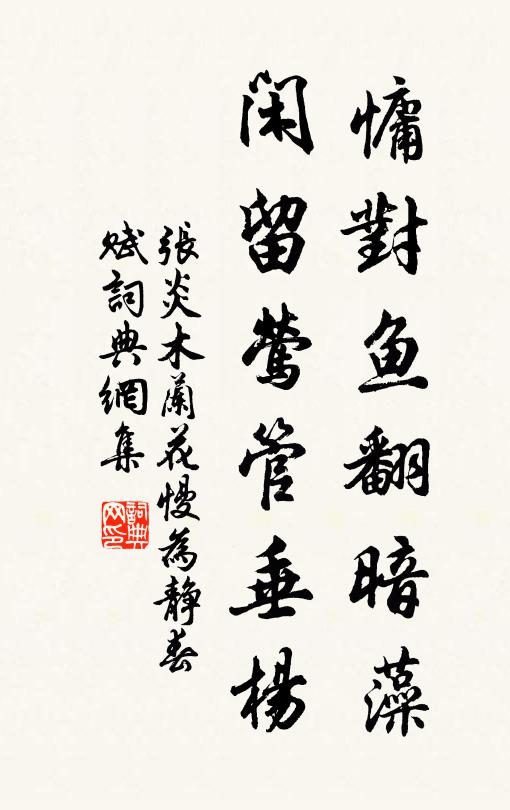 慵對鱼翻暗藻
闲留鶯管垂楊
張炎木蘭花慢為静春
賦詞典網集
詞典网印